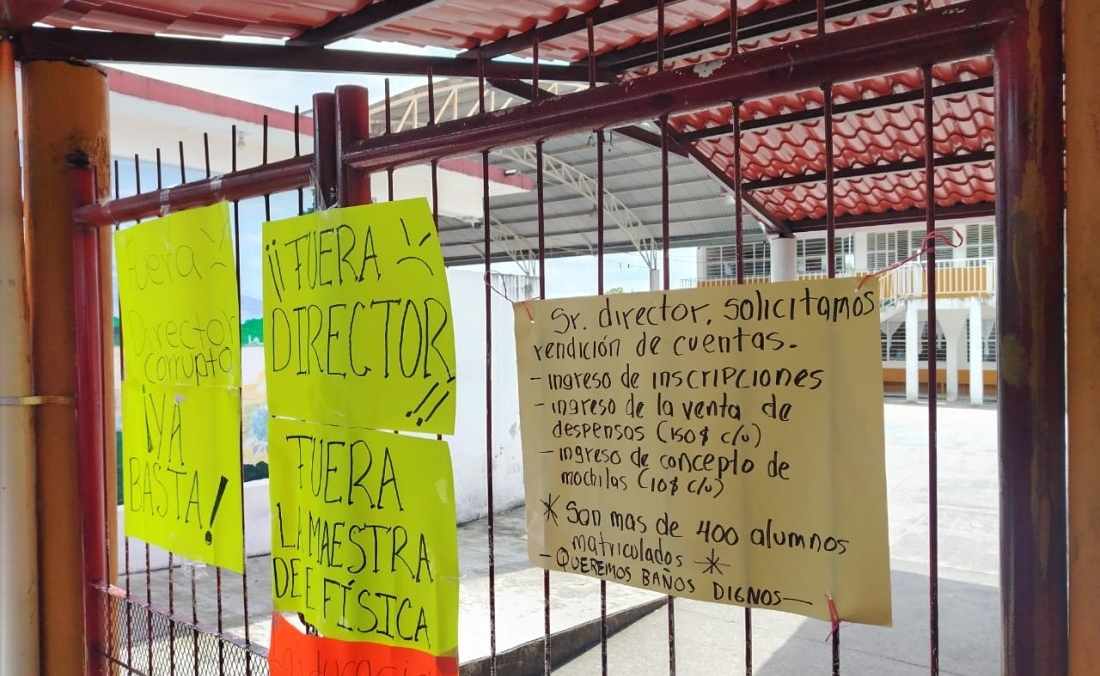 Fuera
Director
corrupto
¡YA
BASTA!
¡¡FUERA
DIRECTOR
!!
FUERA
LA MAESTRA
DE E FÍSICA
Sr. director, solicitamos
rendición de cuentas.
- ingreso de inscripciones
- ingreso de la venta de
despensas (150$ c/u)
- ingreso de concepto de
mochilas (10$ c/u)
* Son mas de 400 alumnos
matriculados *
- QUEREMOS BAÑOS DIGNOS -